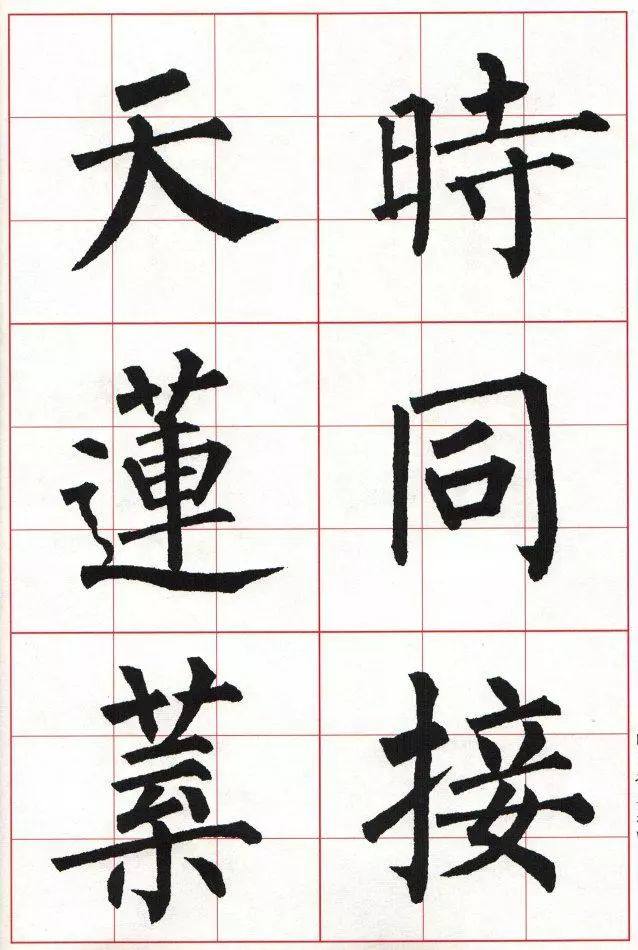 時同接
天蓮葉